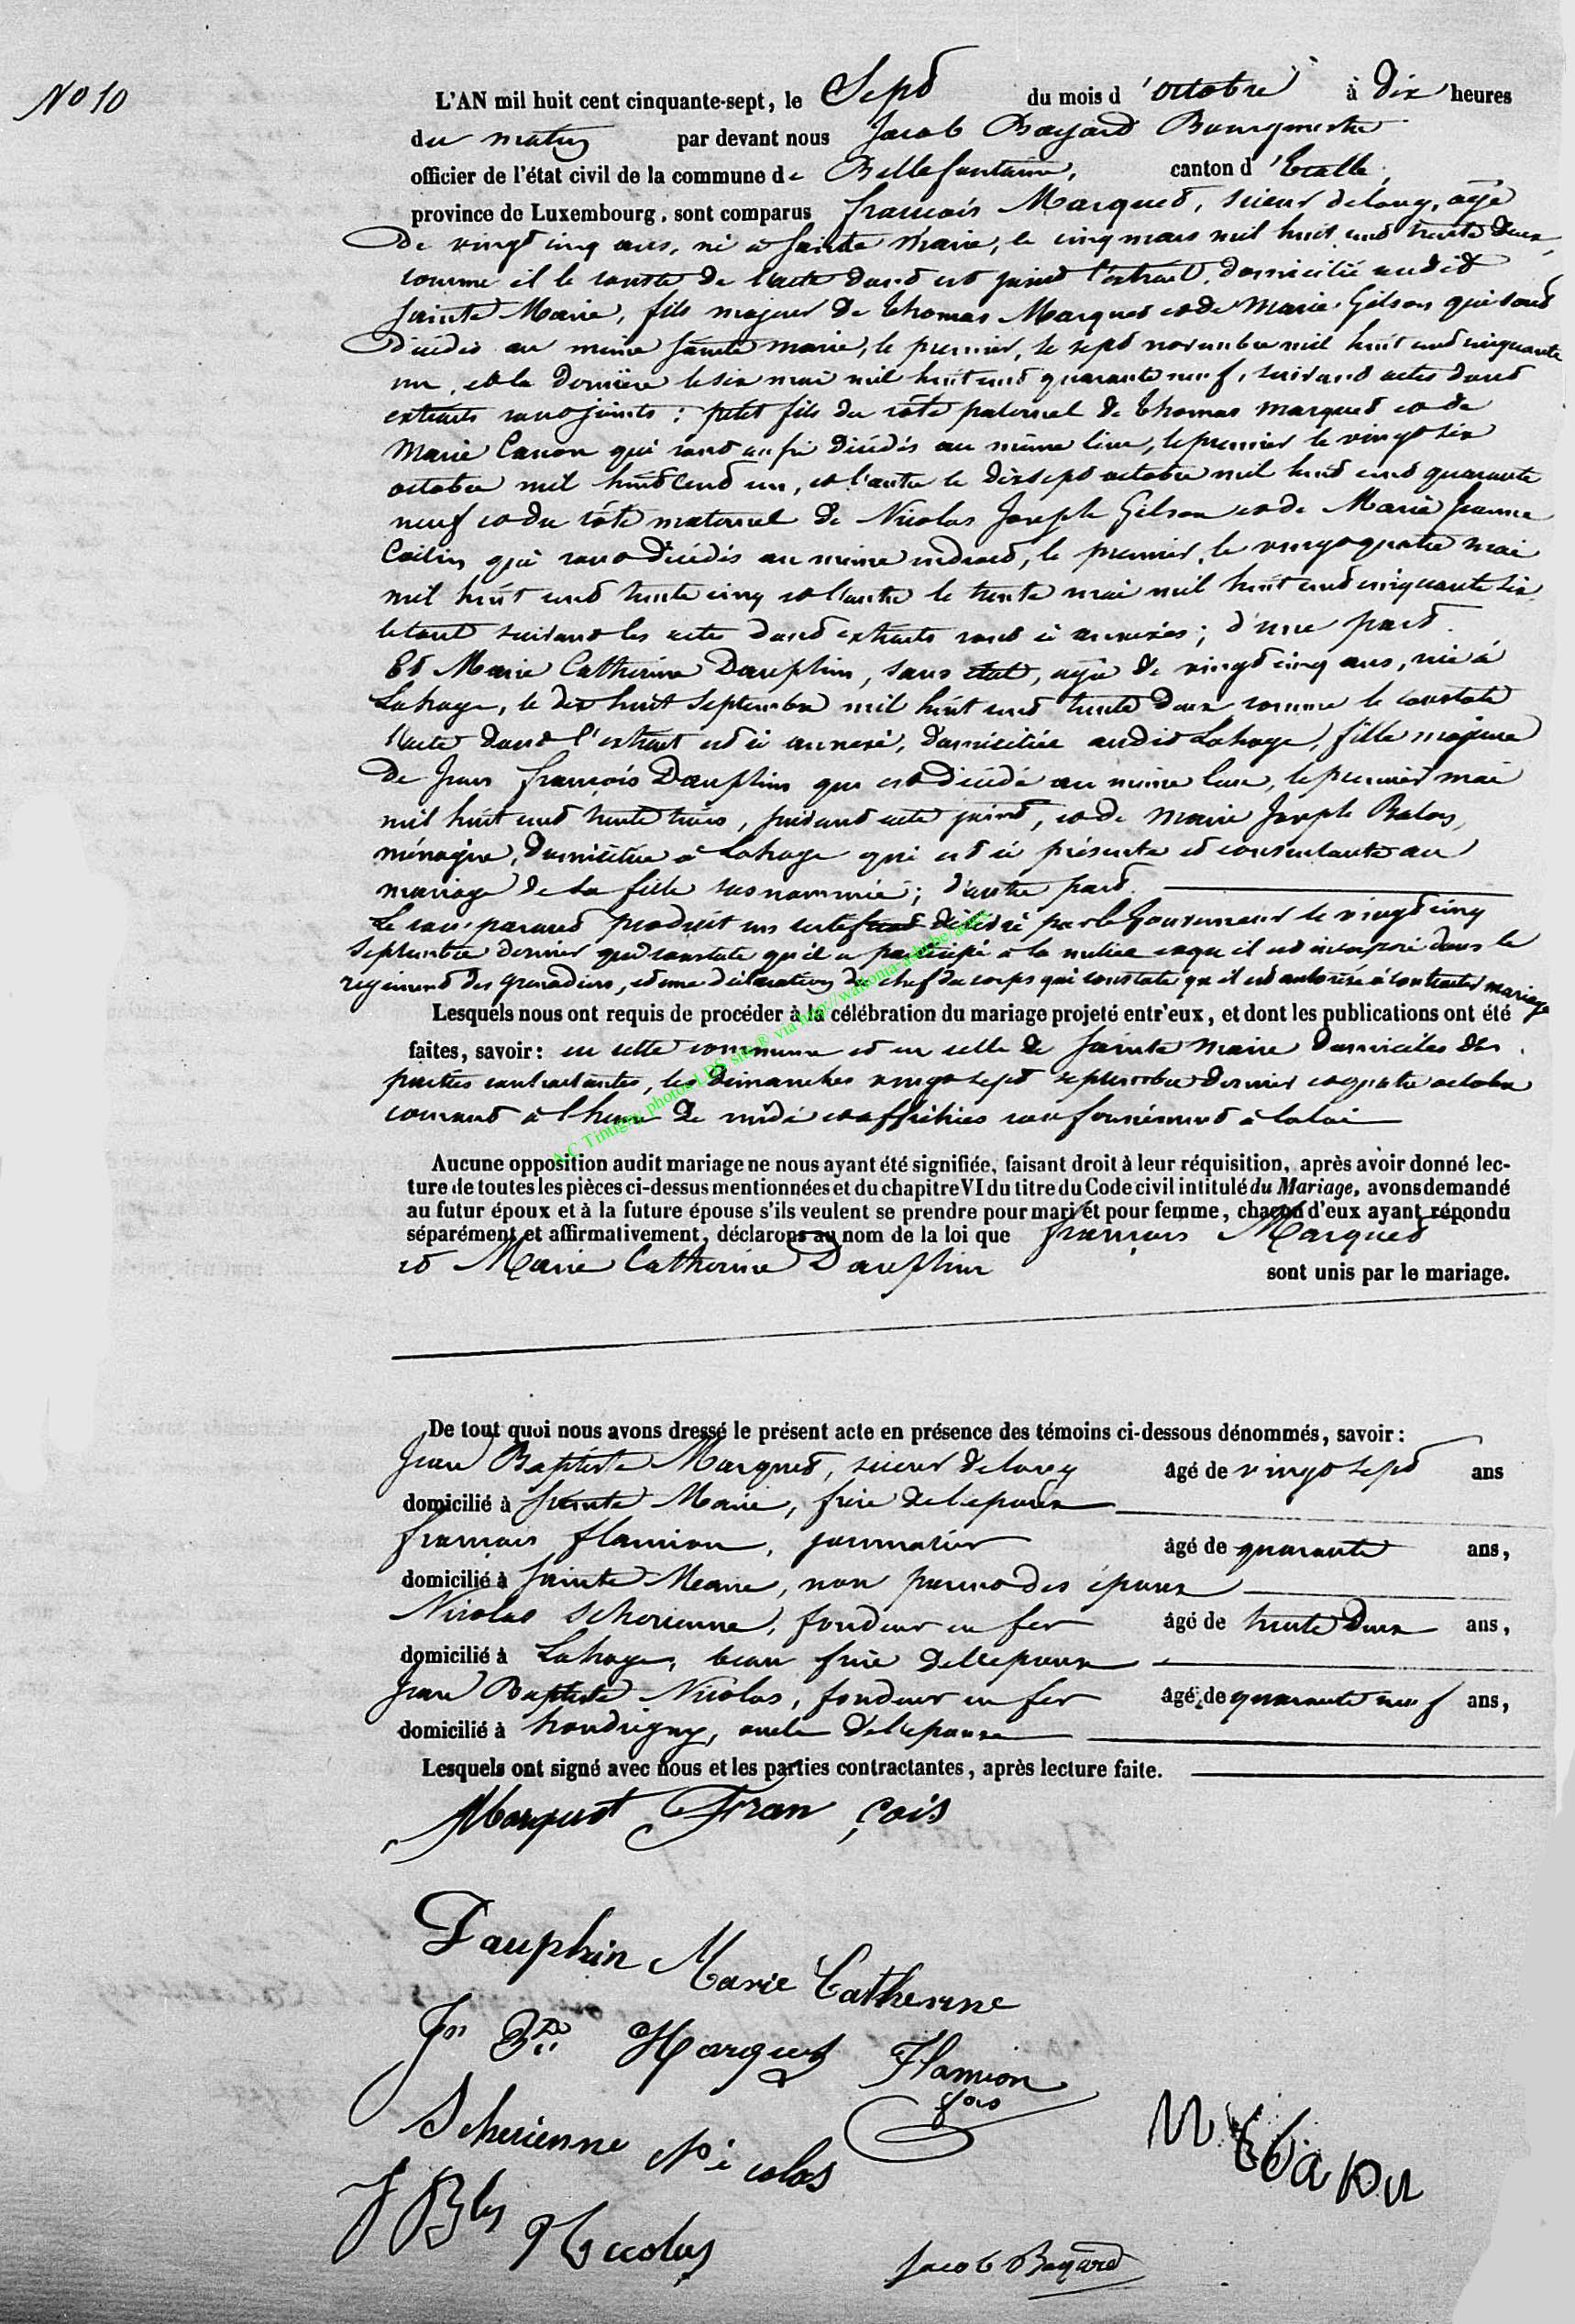 No 10
L'AN mil huit cent cinquante-sept, le Sept du mois d'octobre à dix heures
du matin par devant nous Jacob Bayard Bourgmestre
officier de l'état civil de la commune de Bellefontaine, canton d'Etalle,
province de Luxembourg, sont comparus françois Marquet, scieur de long, agé
de vingt cinq ans, né à Sainte Marie, le cinq mars mil huit cent trente deux,
comme il le conste de l'acte dont est joint l'extrait, domicilié audit
Sainte Marie, fils majeur de thomas Marquet et de Marie Gilson qui sont
décédés au même Sainte marie, le premier, le sept novembre mil huit cent cinquante
un, et la dernière le six mai mil huit cent quarante neuf, suivant actes dont
extraits sont joints : petit fils du côté paternel de thomas marquet et de
Marie Canon qui sont aussi décédés au même lieu, le premier le vingt six
octobre mil huit cent un, et l'autre le dix sept octobre mil huit cent quarante
neuf et du côté maternel de Nicolas Joseph Gilson et de Marie Jeanne
qui sont décédés au même endroit, le premier, le vingt quatre mai
mil huit cent trente cinq et l'autre le trente mai mil huit cent cinquante six
le tout suivant les actes dont extraits sont ci annexés ; d'une part.
Et Marie Catherine Dauphin, sans état, agée de vingt cinq ans, née à
Lahage, le dix huit Septembre mil huit cent trente deux comme le constate
l'acte dont l'extrait est ci annexé, domiciliée audit Lahage, fille majeure
de Jean françois Dauphin qui est décédé au même lieu, le premier mai
mil huit cent trente trois, suivant acte joint, et de marie Joseph Balon,
ménagère, domiciliée à Lahage qui est ci présente et consentante au
mariage de sa fille susnommée ; d'autre part.
Le comparant produit un certificat délivré par le Gouverneur le vingt cinq
Septembre dernier qui constate qu'il a participé à la milice et qu'il est incorporé dans le
regiment des grenadiers, et une déclaration du chef du corps qui constate qu'il est autorisé à contracter mariage
Lesquels nous ont requis de procéder à la célébration du mariage projeté entr'eux, et dont les publications ont été
faites, savoir : en cette commune et en celle de Sainte Marie domiciles des
parties contractantes, les dimanches vingt sept septembre dernier et quatre octobre
courant à l'heure de midi et affichées conformément à la loi
Aucune opposition audit mariage ne nous ayant été signifiée, faisant droit à leur réquisition, après avoir donné lec-
ture de toutes les pièces ci-dessus mentionnées et du chapitre VI du titre du Code civil intitulé du Mariage, avons demandé
au futur époux et à la future épouse s'ils veulent se prendre pour mari et pour femme, chacun d'eux ayant répondu
séparément et affirmativement, déclarons au nom de la loi que françois Marquet
et Marie Catherine Dauphin sont unis par le mariage.
De tout quoi nous avons dressé le présent acte en présence des témoins ci-dessous dénommés, savoir :
Jean Baptiste Marquet, scieur de long agé de vingt sept ans
domicilié à Sainte Marie, frère de l'époux
françois flamion, journalier âgé de quarante ans,
domicilié à Sainte Marie, non parent des époux
Nicolas Scherienne, fondeur en fer âgé de trente deux ans,
domicilié à Lahage, beau frère de l'épouse
Jean Baptiste Nicolas, fondeur en fer âgé de quarante neuf ans,
domicilié à houdrigny, oncle de l'épouse
Lesquels ont signé avec nous et les parties contractantes, après lecture faite.
Marquet Fran çois
Dauphin Marie Catherine
Jn Bte Marquet Flamion
fois
Scherienne Nicolas
J Bte Nicolas
Jacob Bayard
A.C Tintigny photos LDS site® via http://wallonia-asbl.be/actes